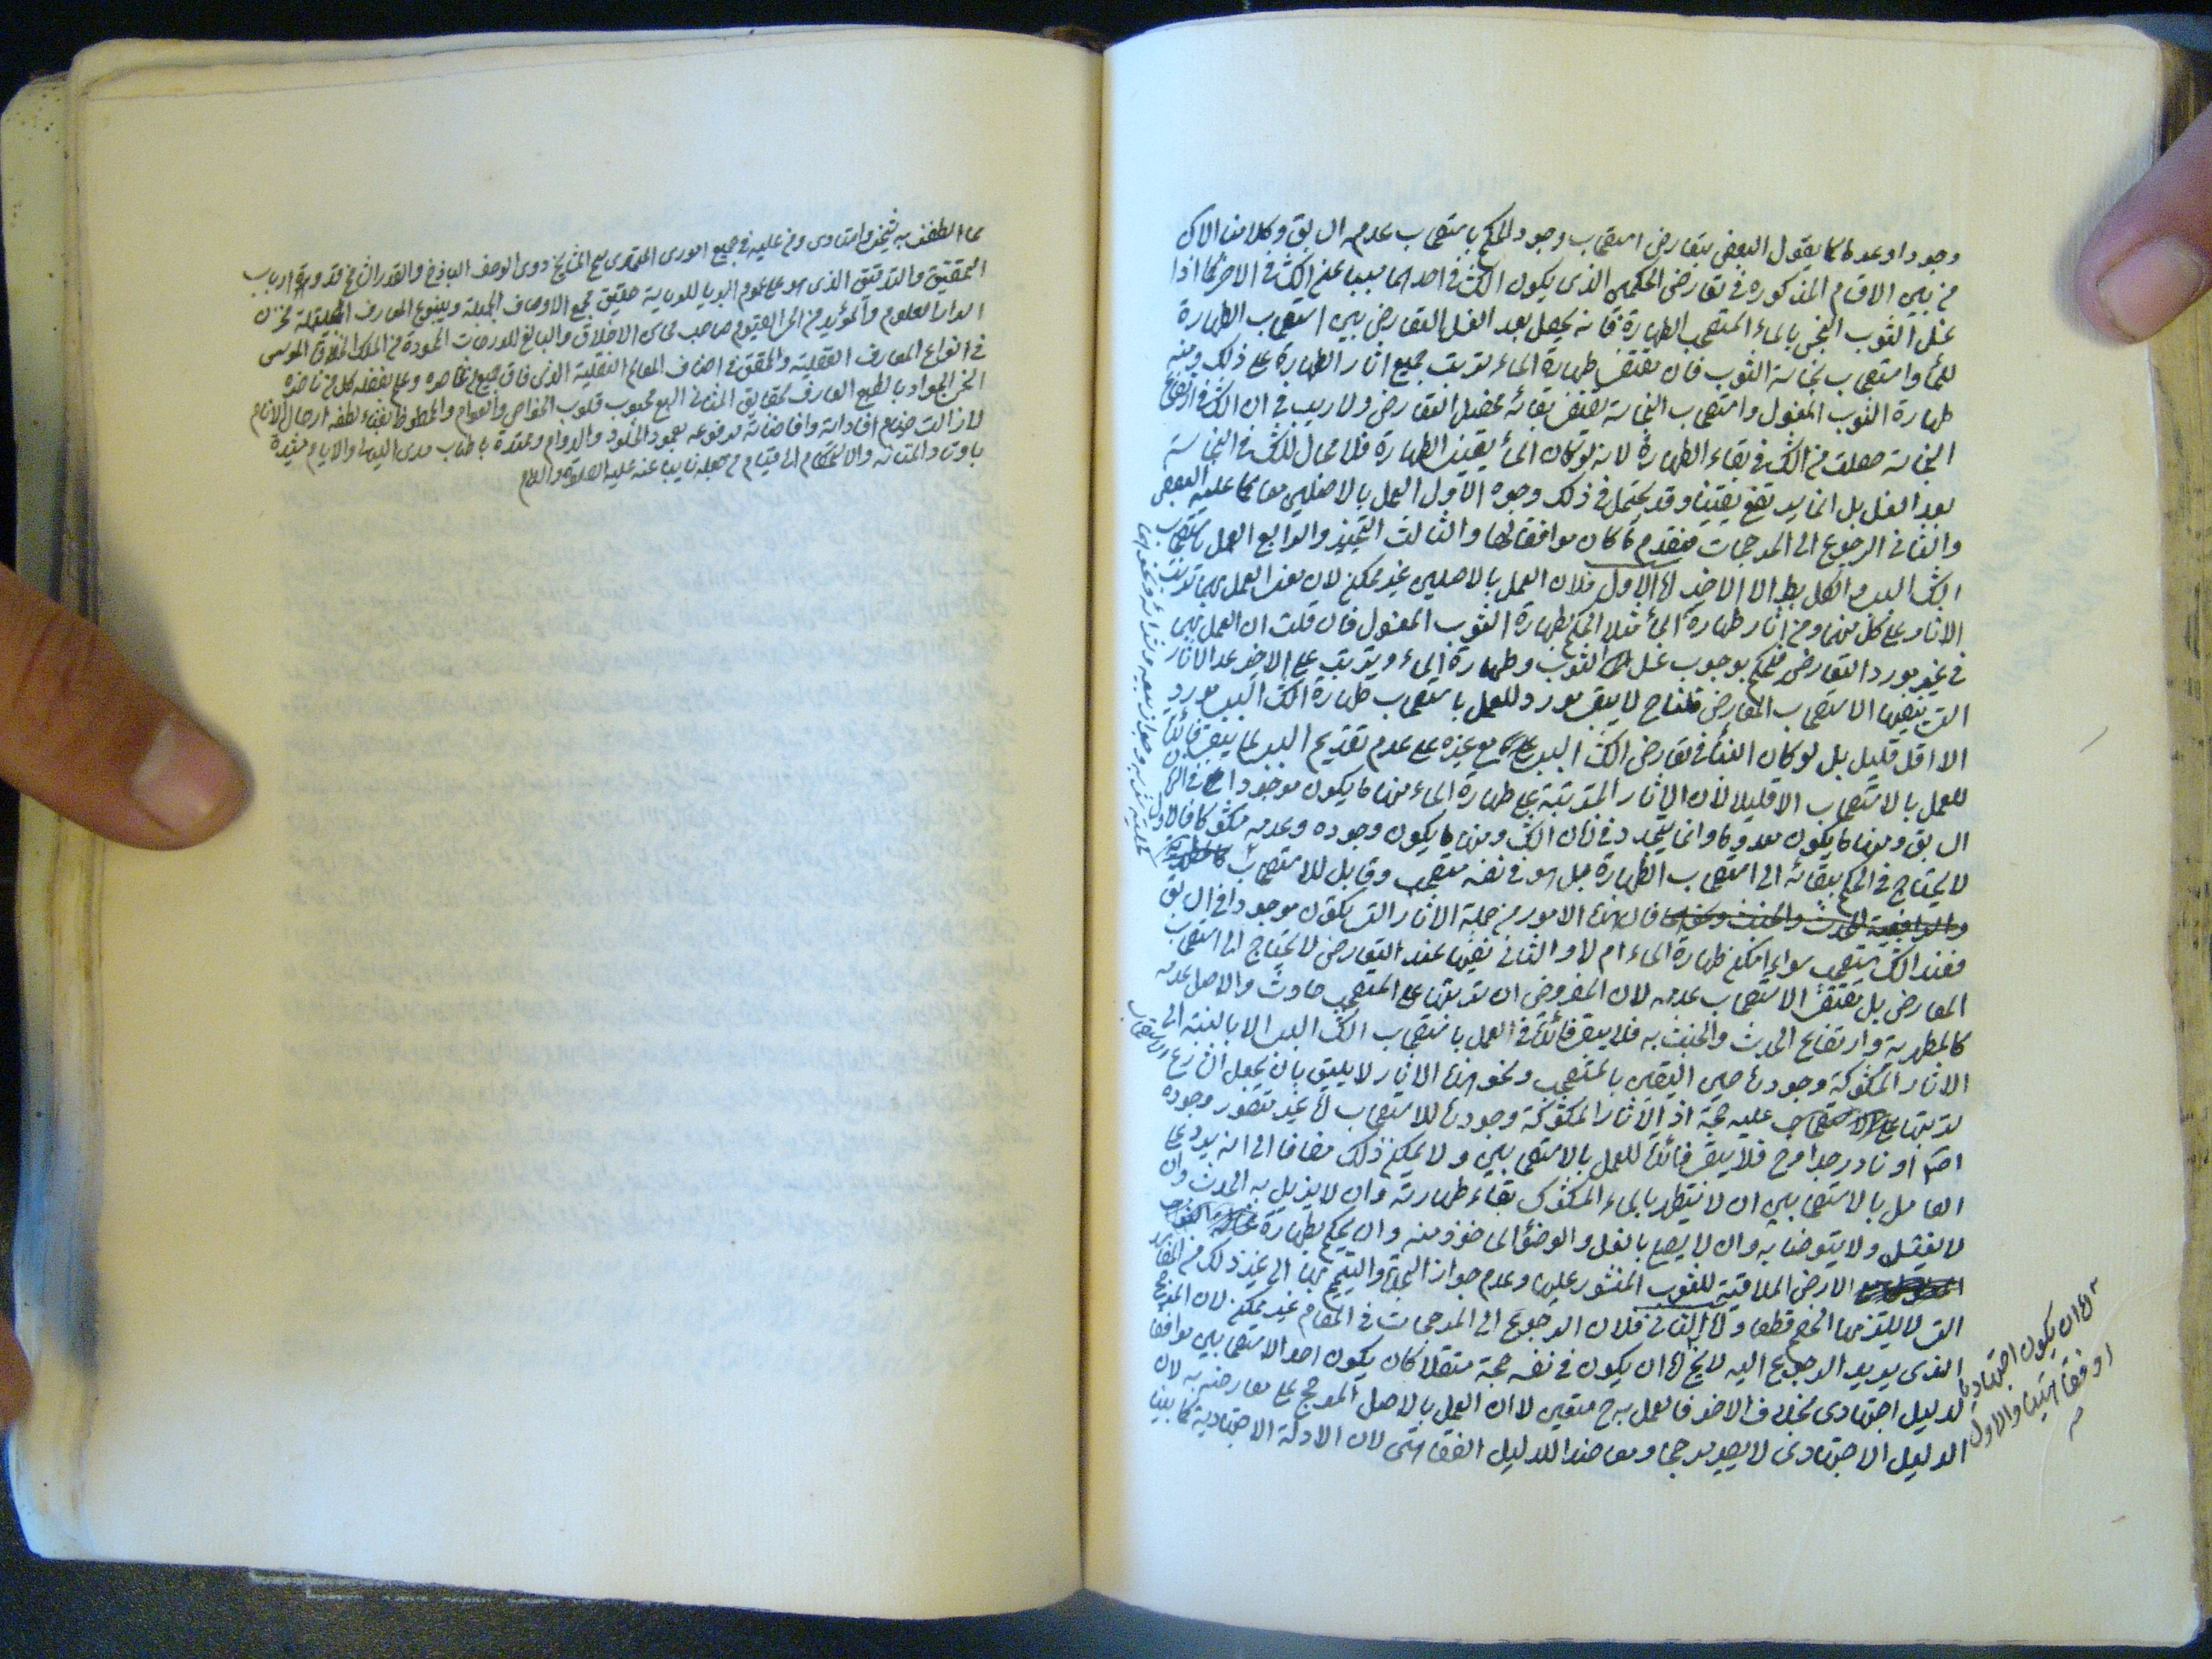 وجودا وعدما كما يقول البعض بتعارض استصحاب وجود الحكم باستصحاب عدمه السابق وكلامنا الان
من بين الاقسام المذكورة في تعارض الحكمين الذي يكون الشك في احدهما سببا عن الشك في الاخر كما اذا
غسل الثوب النجس بالماء المستصحب الطهارة فانه يحصل بعد الغسل التعارض بين استصحاب الطهارة
للماء واستصحاب نجاسة الثوب فان مقتضى طهارة الماء ترتب جميع اثار الطهارة على ذلك ومنه
طهارة الثوب المغسول واستصحاب النجاسة يقتضي بقائه فيحصل التعارض ولا ريب في ان الشك في ارتفاع
النجاسة حصلت من الشك في بقاء الطهارة لانه لو كان الماء يقيني الطهارة فلا مجال للشك في النجاسة
بعد الغسل بل انما يرتفع يقينا وقد يحتمل في ذلك وجوه الاول العمل بالاصلين معا كما عليه البعض
والثاني الرجوع الى المرجحات فيقدم ما كان موافقا لها والثالث التخيير والرابع العمل باستصحاب
الشك السببي والكل بط الا الاخير اما الاول فلان العمل بالاصلين غير ممكن لان معنى العمل بهما ترتب
الاثار على كل منهما ومن اثار طهارة الماء مثلا الحكم بطهارة الثوب المغسول فان قلت ان العمل بهما
في غير مورد التعارض فيحكم بوجوب غسل الثوب وطهارة الماء ويترتب على الاخير عدا الاثار
التي ينفيها الاستصحاب المعارض قلنا ح لا يبقى مورد للعمل باستصحاب طهارة الشك السببي مورد
الا اقل قليل بل لو كان البناء في تعارض الشك السببي مع غيره على عدم تقديم السببي لما يبقى فائدة
للعمل بالاستصحاب الا قليلا لان الاثار المترتبة على طهارة الماء منها ما يكون موجودا في الزمن
السابق ومنها ما يكون معدوما وانما يتجدد في زمان الشك ومنها ما يكون وجوده وعدمه مشكوكا فالاول
لا يحتاج في الحكم ببقائه الى استصحاب الطهارة بل هو في نفسه مستصحب وقابل للاستصحاب
فان هذه الامور من جملة الاثار التي يكون موجودا في السابق
فعند الشك يستصحب سواء امكن طهارة الماء ام لا والثاني نفيها عند التعارض لا يحتاج الى استصحاب
المعارض بل يقتضي الاستصحاب عدمه لان المفروض ان ترتبها على المستصحب حادث والاصل عدمه
كالمطهرية وارتفاع الحدث والخبث به فلا يبقى فائدة في العمل باستصحاب الشك السببي الا بالنسبة الى
الاثار المشكوكة وجودها حين اليقين بالمستصحب ونحو هذه الاثار لا يليق بان يجعل الشارع الاستصحاب
لترتبها عليه حجة اذ الاثار المشكوكة وجودها للاستصحاب اما غير متصور وجوده
اصلا او نادر جدا وح فلا يبقى فائدة للعمل بالاستصحابين ولا يمكن ذلك مضافا الى انه يرد على
العامل بالاستصحابين ان لا يتطهر بالماء المشكوك بقاء طهارته وان لا يزيل به الحدث وان
لا يغتسل ولا يتوضأ به وان لا يصلح بالغسل والوضوء الماخوذ منه وان يحكم بطهارة
الارض الملاقية للثوب المنشور عليها وعدم جواز السجدة والتيمم بها الى غير ذلك من المفاسد
التي لا يلتزمها الخصم قطعا واما الثاني فلان الرجوع الى المرجحات في المقام غير ممكن لان المرجح
الذي يريد الرجوع اليه لا يخ اما ان يكون في نفسه حجة مستقلا كان يكون احد الاستصحابين موافقا
لدليل اجتهادي بخلاف الاخر فالعمل به ح متعين لا ان العمل بالاصل المرجح على معارضه به لان
الدليل الاجتهادي لا يصير مرجحا ومعاضدا للدليل الفقاهتي لان الادلة الاجتهادية كما بينا
اما ان يكون اجتهاديا
او فقاهتيا والاول
مما الطفف به شيخي واستادي ومن عليه في جميع اموري المقتدى مع المشايخ ذوي الوصف الباذخ والقدر الشامخ قدوة ارباب
التحقيق والتدقيق الذي هو على عموم البرايا للهداية حقيق مجمع الاوصاف الجميلة وينبوع المعارف الجليلة مخزن
اسرار العلوم والمؤيد من الحي القيوم صاحب محاسن الاخلاق والبالغ للدرجات المحمودة من الملك الخلاق الموسس
في انواع المعارف العقلية والمحقق في اصناف المعالم النقلية الذي فاق جميع من عاصره وعلى بفضله كل من ناضره
الحبر الجواد بالطبع العارف بحقايق المثاني السبع محبوب قلوب الخواص والعوام والمحطوط بفناء لطفه ارحال الانام
لا زالت خيام افاداته وافاضاته مرفوعه بعمود الخلود والدوام وممتدة باطناب مدى الليالي والايام مشيدة
باوتاد المتانة والاستحكام الى قيام من جعله نايبا عنه عليه الصلوة والسلام